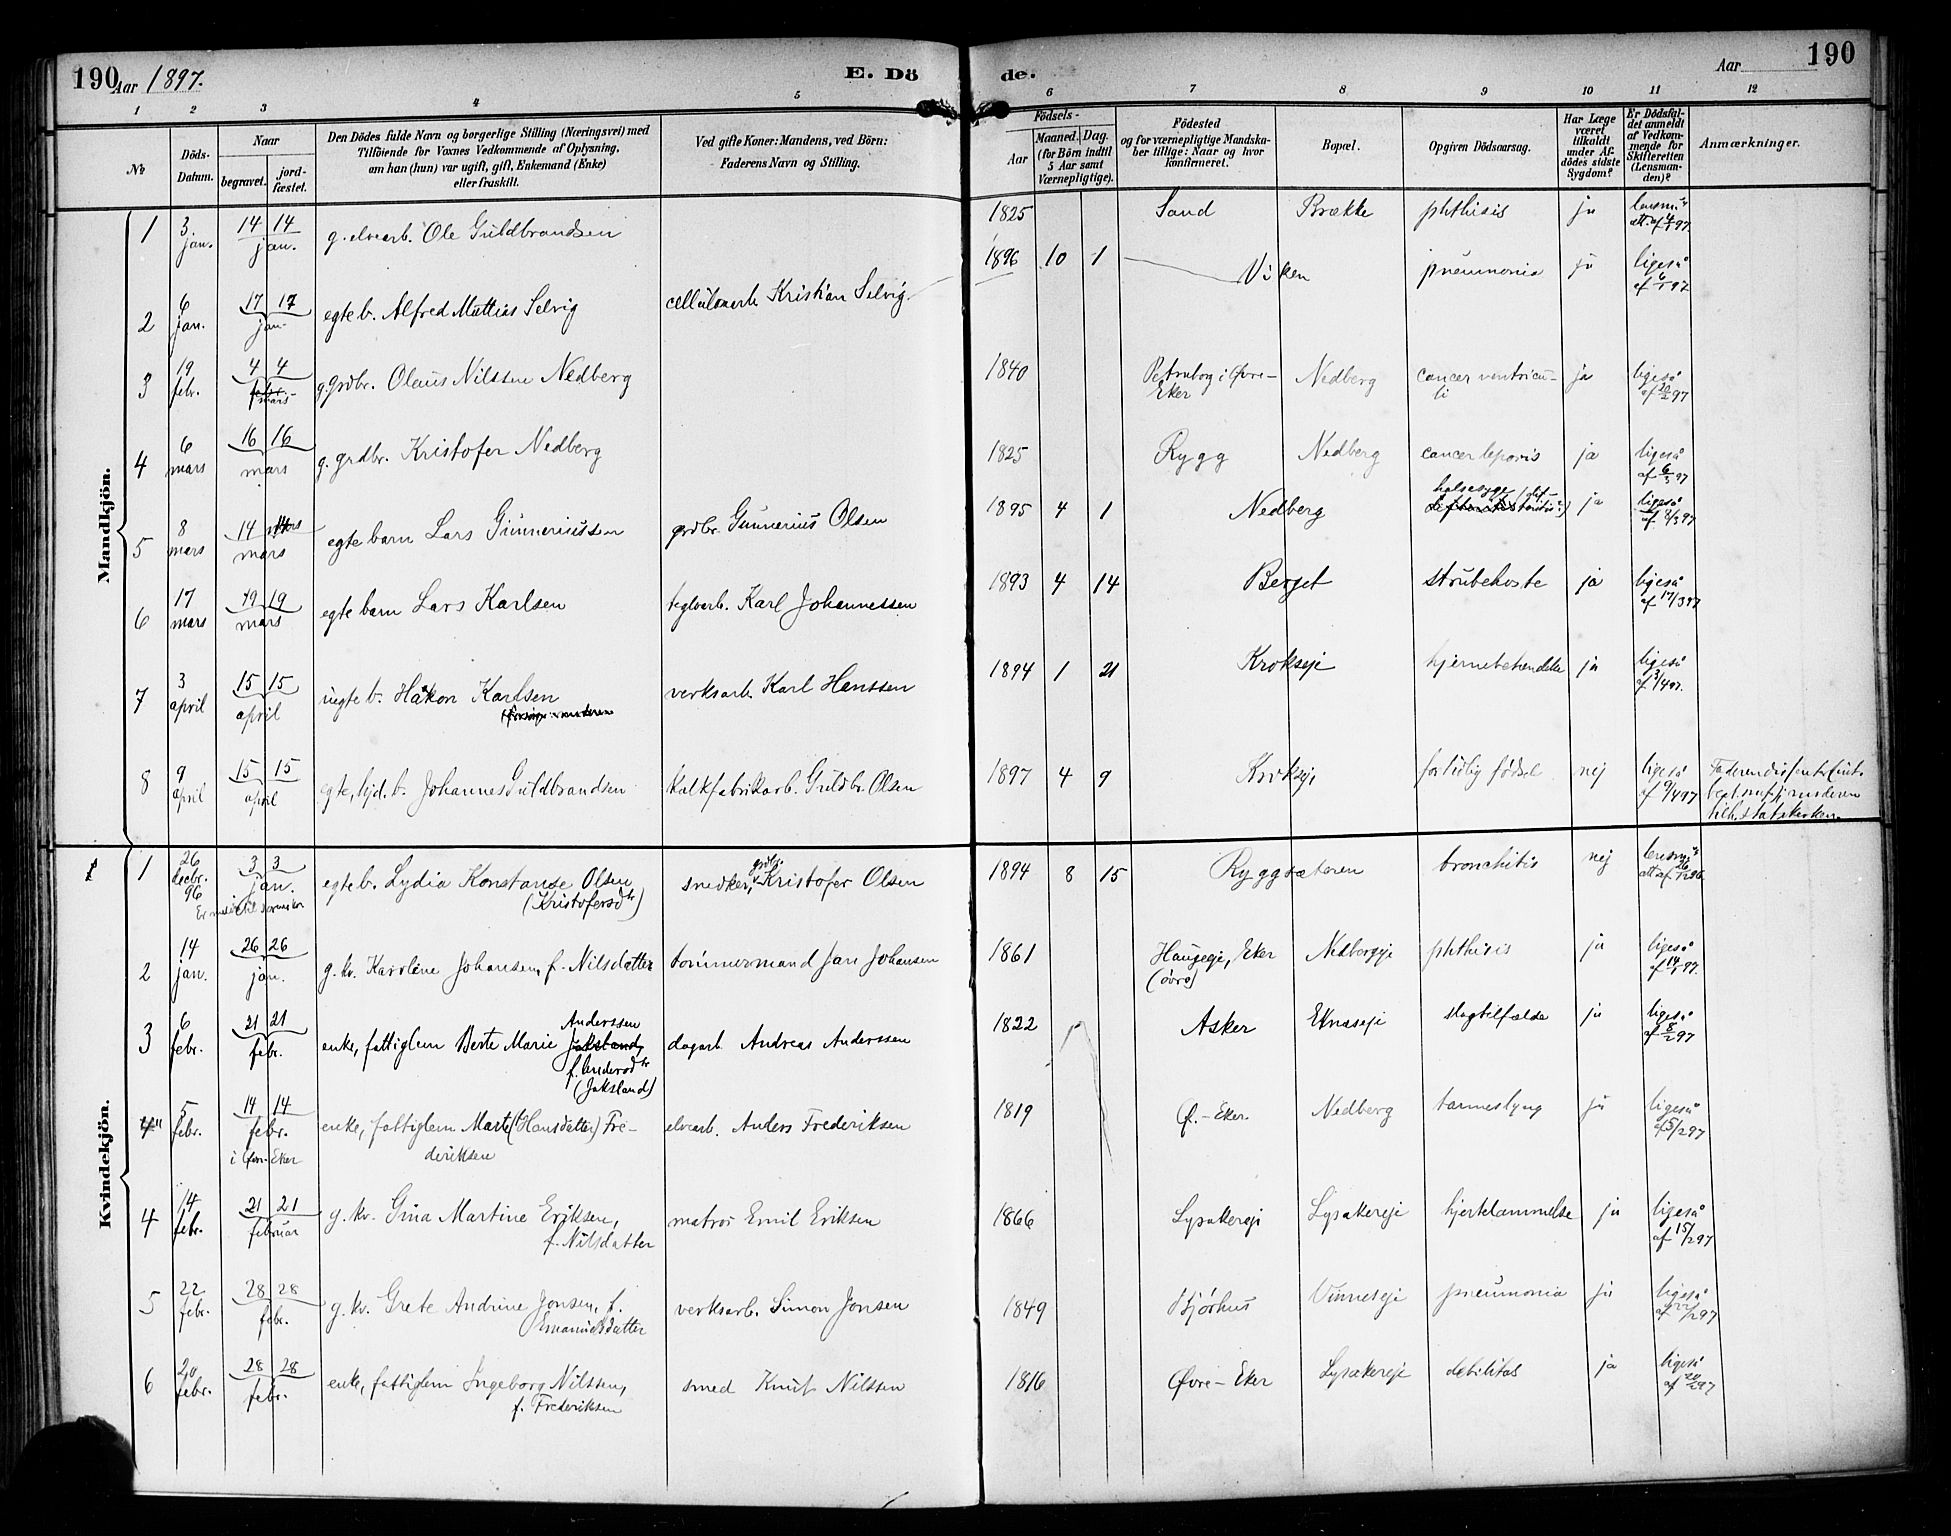 190 Aar 1897. E. Dö
de. Aar 190
1 2 3 4 5 6 7 8 9 10 11 12
No
Döds-Datum.
Naar
begravet. jordfæstet.
Den Dödes fulde Navn og borgerlige Stilling (Næringsvei) med
Tilföiende for Voxnes Vedkommende af Oplysning,
om han (hun) var ugift, gift, Enkemand (Enke)
eller fraskilt.
Ved gifte Koner: Mandens, ved Börn:
Faderens Navn og Stilling.
Födsels-
Aar Maaned. Dag.
(for Börn indtil
5 Aar samt
Værnepligtige).
Födested
og for værnepligtige Mandska-
ber tillige: Naar og hvor
konfirmeret.
Bopæl.
Opgiven Dödsaarsag.
Har Læge
været
tilkaldt
under Af-
dödes sidste
Sygdom?
Er Dödsfal-
det anmeldt
af Vedkom-
mende for
Skifteretten
(Lensman-
den)?
Anmærkninger.
Mandkjön.
1 3. jan. 14 14 jan. g. elvearb. Ole Guldbrandsen 1825 Sand Brække phthisis ja lensm.s att. af 4/1 97
2 6 jan. 17 17 jan. egte b. Alfred Mattias Selvig cellulosearb. Kristian Selvig. 1896 10 1 Viken pneumonia ja ligeså af 6/1 97
3 19 febr. 4 4 mars g. grdbr. Olaus Nilssen Nedberg 1840 i Øvre-Eker Nedberg cancer ventriculi ja ligeså af 20/2 97
4 6 mars 16 16 mars g. grdbr. Kristofer Nedberg 1825 Rygg Nedberg cancer leporis ja ligeså af 6/3 97
5 8 mars 14 14 mars egte barn Lars Gunneriussen grdbr. Gunnerius Olsen 1895 4 1 Nedberg halsesyge ja ligeså af 8/3 97
6 17 mars 19 19 mars egte barn Lars Karlsen teglarb. Karl Johannessen 1893 4 14 Berget strubehoste ja ligeså af 17/3 97
7 3 april 15 15 april uegte b. Håkon Karlsen verksarb. Karl Hanssen 1894 1 21 Krokseje hjernebetendelse ja ligeså af 3/4 97.
8 9 april 15 15 april egte, hjd. b. Johannes Guldbrandsen kalkfabrikarb. Guldbr. Olsen 1897 4 9 Krokseje for tidlig fødsel nej ligeså af 9/4 97 Faderen dissenter moderen tilh. statskirken.
Kvindekjön.
1 26 decbr. 96 3 3 jan. egte b. Lydia Konstanse Olsen (Kristofersdtr) snedker, grdbr. Kristofer Olsen 1894 8 15 Ryggsæteren bronchitis nej lensm.s att. af 26/12 96
2 14 jan. 26 26 jan. g. kv. Karoline Johansen, f. Nilsdatter tømmermand Jan Johansen 1861 Haugeje, Eker (øvre) Nedbergeje phthisis ja ligeså af 14/1 97.
3 6 febr. 21 21 febr. enke, fattiglem Berte Marie Jaksland, Anderssen f. Andersdtr (Jaksland) dagarb. Andreas Anderssen 1822 Asker Eknaseje slagtilfælde ja ligeså af 8/2 97
4" 5 febr. 14 14 febr. i Øvr. Eker enke, fattiglem Marte (Hansdatter) Frederiksen elvearb. Anders Frederiksen 1819 Ø.-Eker. Nedberg tarmeslyng ja ligeså af 5/2 97
4 14 febr. 21 21 februar g. kv. Gina Martine Eriksen, f. Nilsdatter matros Emil Eriksen 1866 Lysakereje Lysakereje hjertelammelse ja ligeså af 15/2 97
5 22 febr. 28 28 febr. g. kv. Grete Andrine Jonsen, f. Emanuelsdatter verksarb. Simon Jonsen 1849 Kjørhus Vinneseje pneumonia ja ligeså af 22/2 97
6 20 febr. 28 28 febr. enke, fattiglem Ingeborg Nilssen, f. Frederiksen smed Knut Nilssen 1816 Øvre-Eker Lysakereje debilitas ja ligeså af 20/2 97